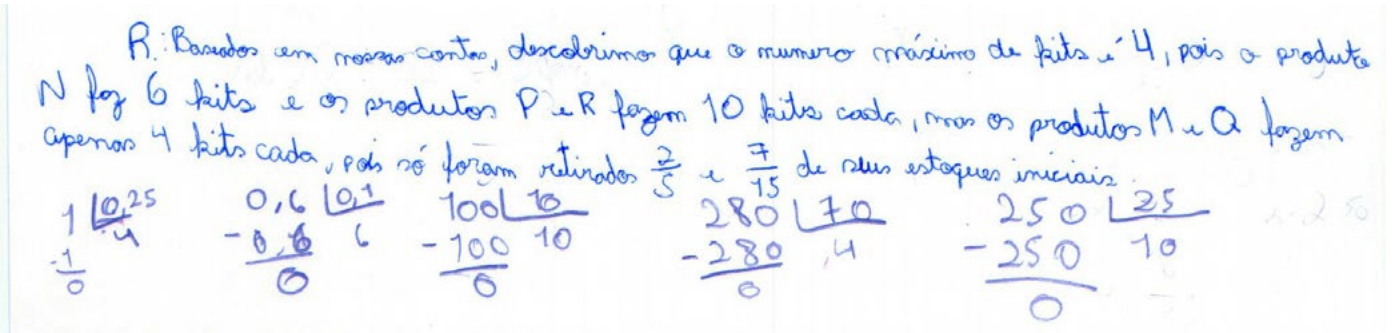 R: Baseados em nossas contas, descobrimos que o numero máximo de kits é 4, pois o produto
N faz 6 kits e os produtos P e R fazem 10 kits cada, mas os produtos M e Q fazem
apenas 4 kits cada, pois só foram retirados 2/5 e 7/15 de seus estoques iniciais.
1 |0,25 0,6 |0,1 100 |10 280 |70 250 |25
-1 4 -0,6 6 -100 10 -280 4 -250 10
0 0 0 0 0